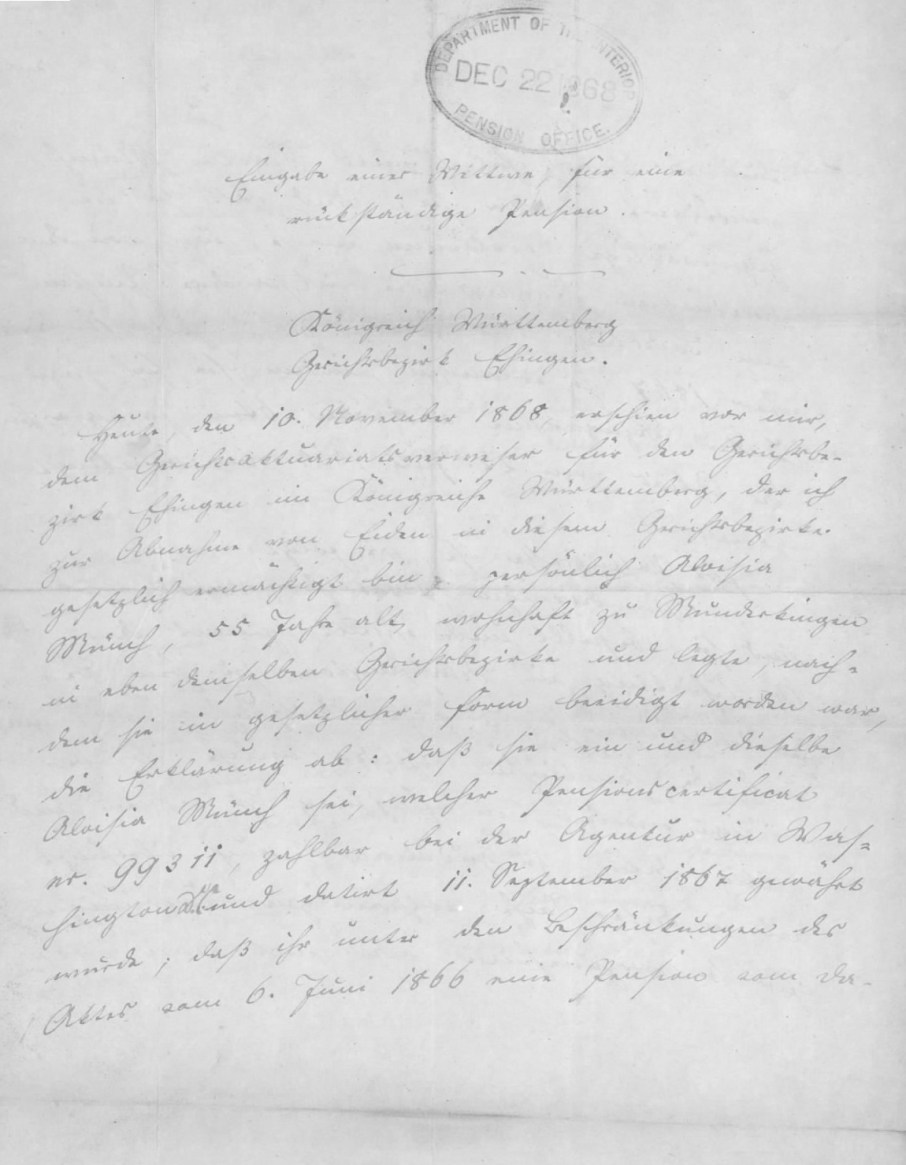 DEPARTMENT OF THE INTERIOR
DEC 22 1868
PENSION OFFICE.
Eingabe einer Wittwe, für eine
rückständige Pension.
Königreich Württemberg
Gerichtsbezirk Ehingen.
Heute, den 10. November 1868, erschien vor mir,
dem Gerichtsaktuariatsverweser für den Gerichtsbe-
zirk Ehingen im Königreiche Württemberg, der ich
zur Abnahme von Eiden in diesem Gerichtsbezirke
gesetzlich ermächtigt bin, persönlich Aloisia
Münch, 55 Jahre alt, wohnhaft zu Munderkingen
in eben demselben Gerichtsbezirke und legte, nach-
dem sie in gesetzlicher Form beeidigt worden war,
die Erklärung ab: daß sie ein und dieselbe
Aloisia Münch sei, welcher Pensionscertificat
nr. 99311, zahlbar bei der Agentur in Was-
hington und datirt 11. September 1867 gewährt
wurde; daß ihr unter den Beschränkungen des
Aktes vom 6. Juni 1866 eine Pension vom da-